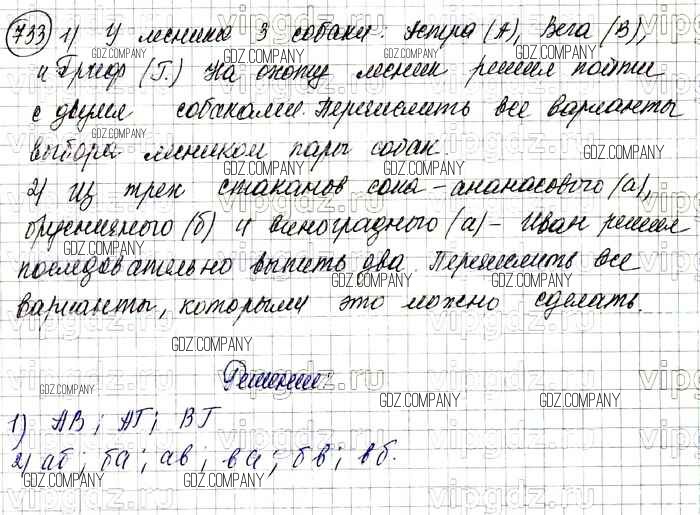 733 1) У лесника 3 собаки: Астра (А), Вега (В),
и Грифф (Г.) На охоту лесник решил пойти
с двумя собаками. Перечислить все варианты
выбора лесником пары собак.
2) Из трех стаканов сока - ананасового (а),
брусничного (б) и виноградного (а) - Иван решил
последовательно выпить два. Перечислить все
варианты, которыми это можно сделать.
Решение:
1) АВ; АГ; ВГ
2) аб; ба; ав; ва; бв; вб.
GDZ.COMPANY
vipgdz.ru